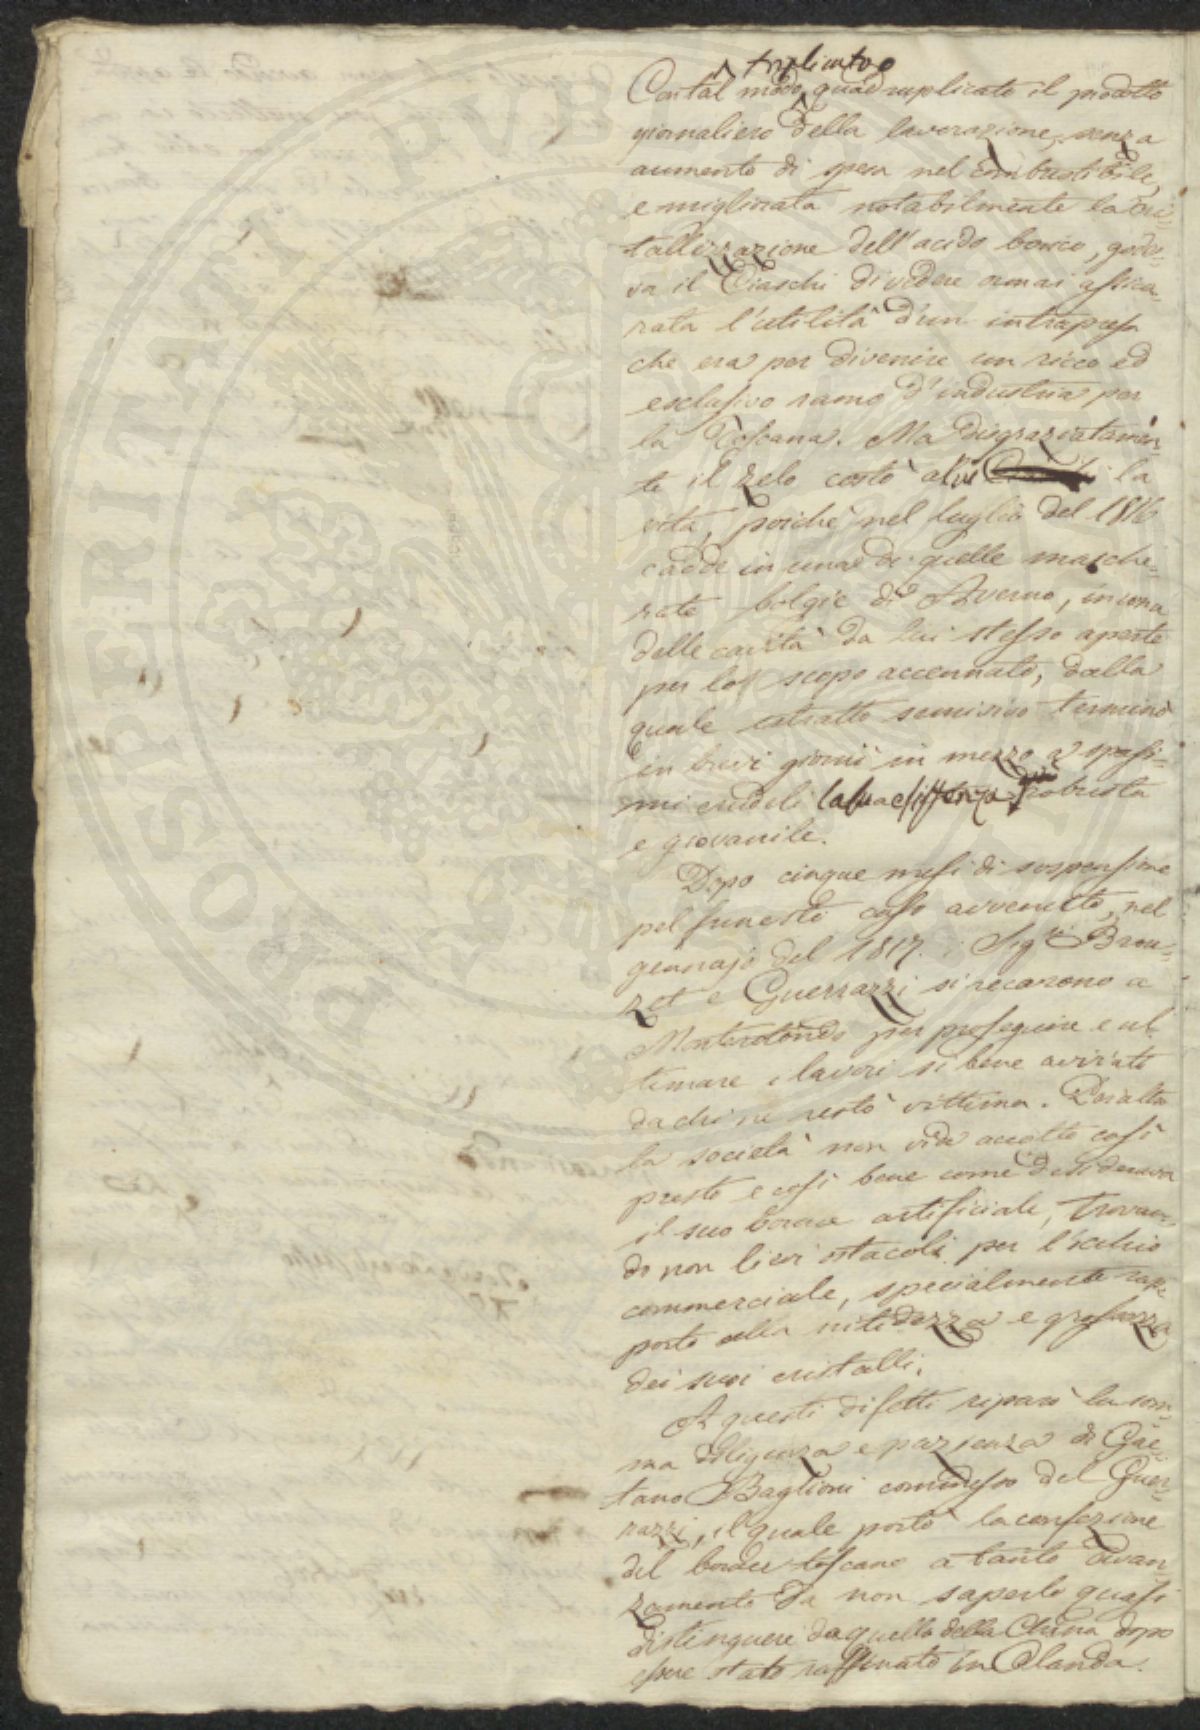 triplicato
Con tal modo quadruplicato il prodotto
giornaliero della lavorazione, senza
aumento di spesa nel combustibile,
e migliorata notabilmente la cris-
tallizzazione dell'acido borico, gode-
va il Ciaschi di vedere ormai assicu-
rata l'utilità d'un intrapresa
che era per divenire un ricco ed
esclusivo ramo d'industria per
la Toscana. Ma disgraziatamen-
te il zelo costò a lui la
vita, poichè nel luglio del 1816
cadde in una di quelle masche-
rate bolgie di Averno, in una
delle cavità da lui stesso aperte
per lo scopo accennato, dalla
quale estratto semivivo terminò
in brevi giorni in mezzo a spasi-
mi crudeli la sua esistenza robusta
e giovanile.
Dopo cinque mesi di sospensione
pel funesto caso avvenuto, nel
gennajo del 1817. i Sig.ri Brou-
zet e Guerrazzi si recarono a
Monterotondo per proseguire e ul-
timare i lavori sì bene avviati
da chi ne restò vittima. Peraltro
la società non vide accolto così
presto e così bene come desiderava
il suo borace artificiale, trovan-
do non lievi ostacoli per l'occhio
commerciale, specialmente rap-
porto alla nitidezza e grossezza
dei suoi cristalli.
A questi difetti riparò la som-
ma diligenza e pazienza di Gae-
tano Baglioni commesso del Guer-
razzi, il quale portò la confezione
del borace toscano a tanto avan-
zamento da non saperlo quasi
distinguere da quello della China dopo
essere stato raffinato in Olanda.
PROSPERITATI PVB